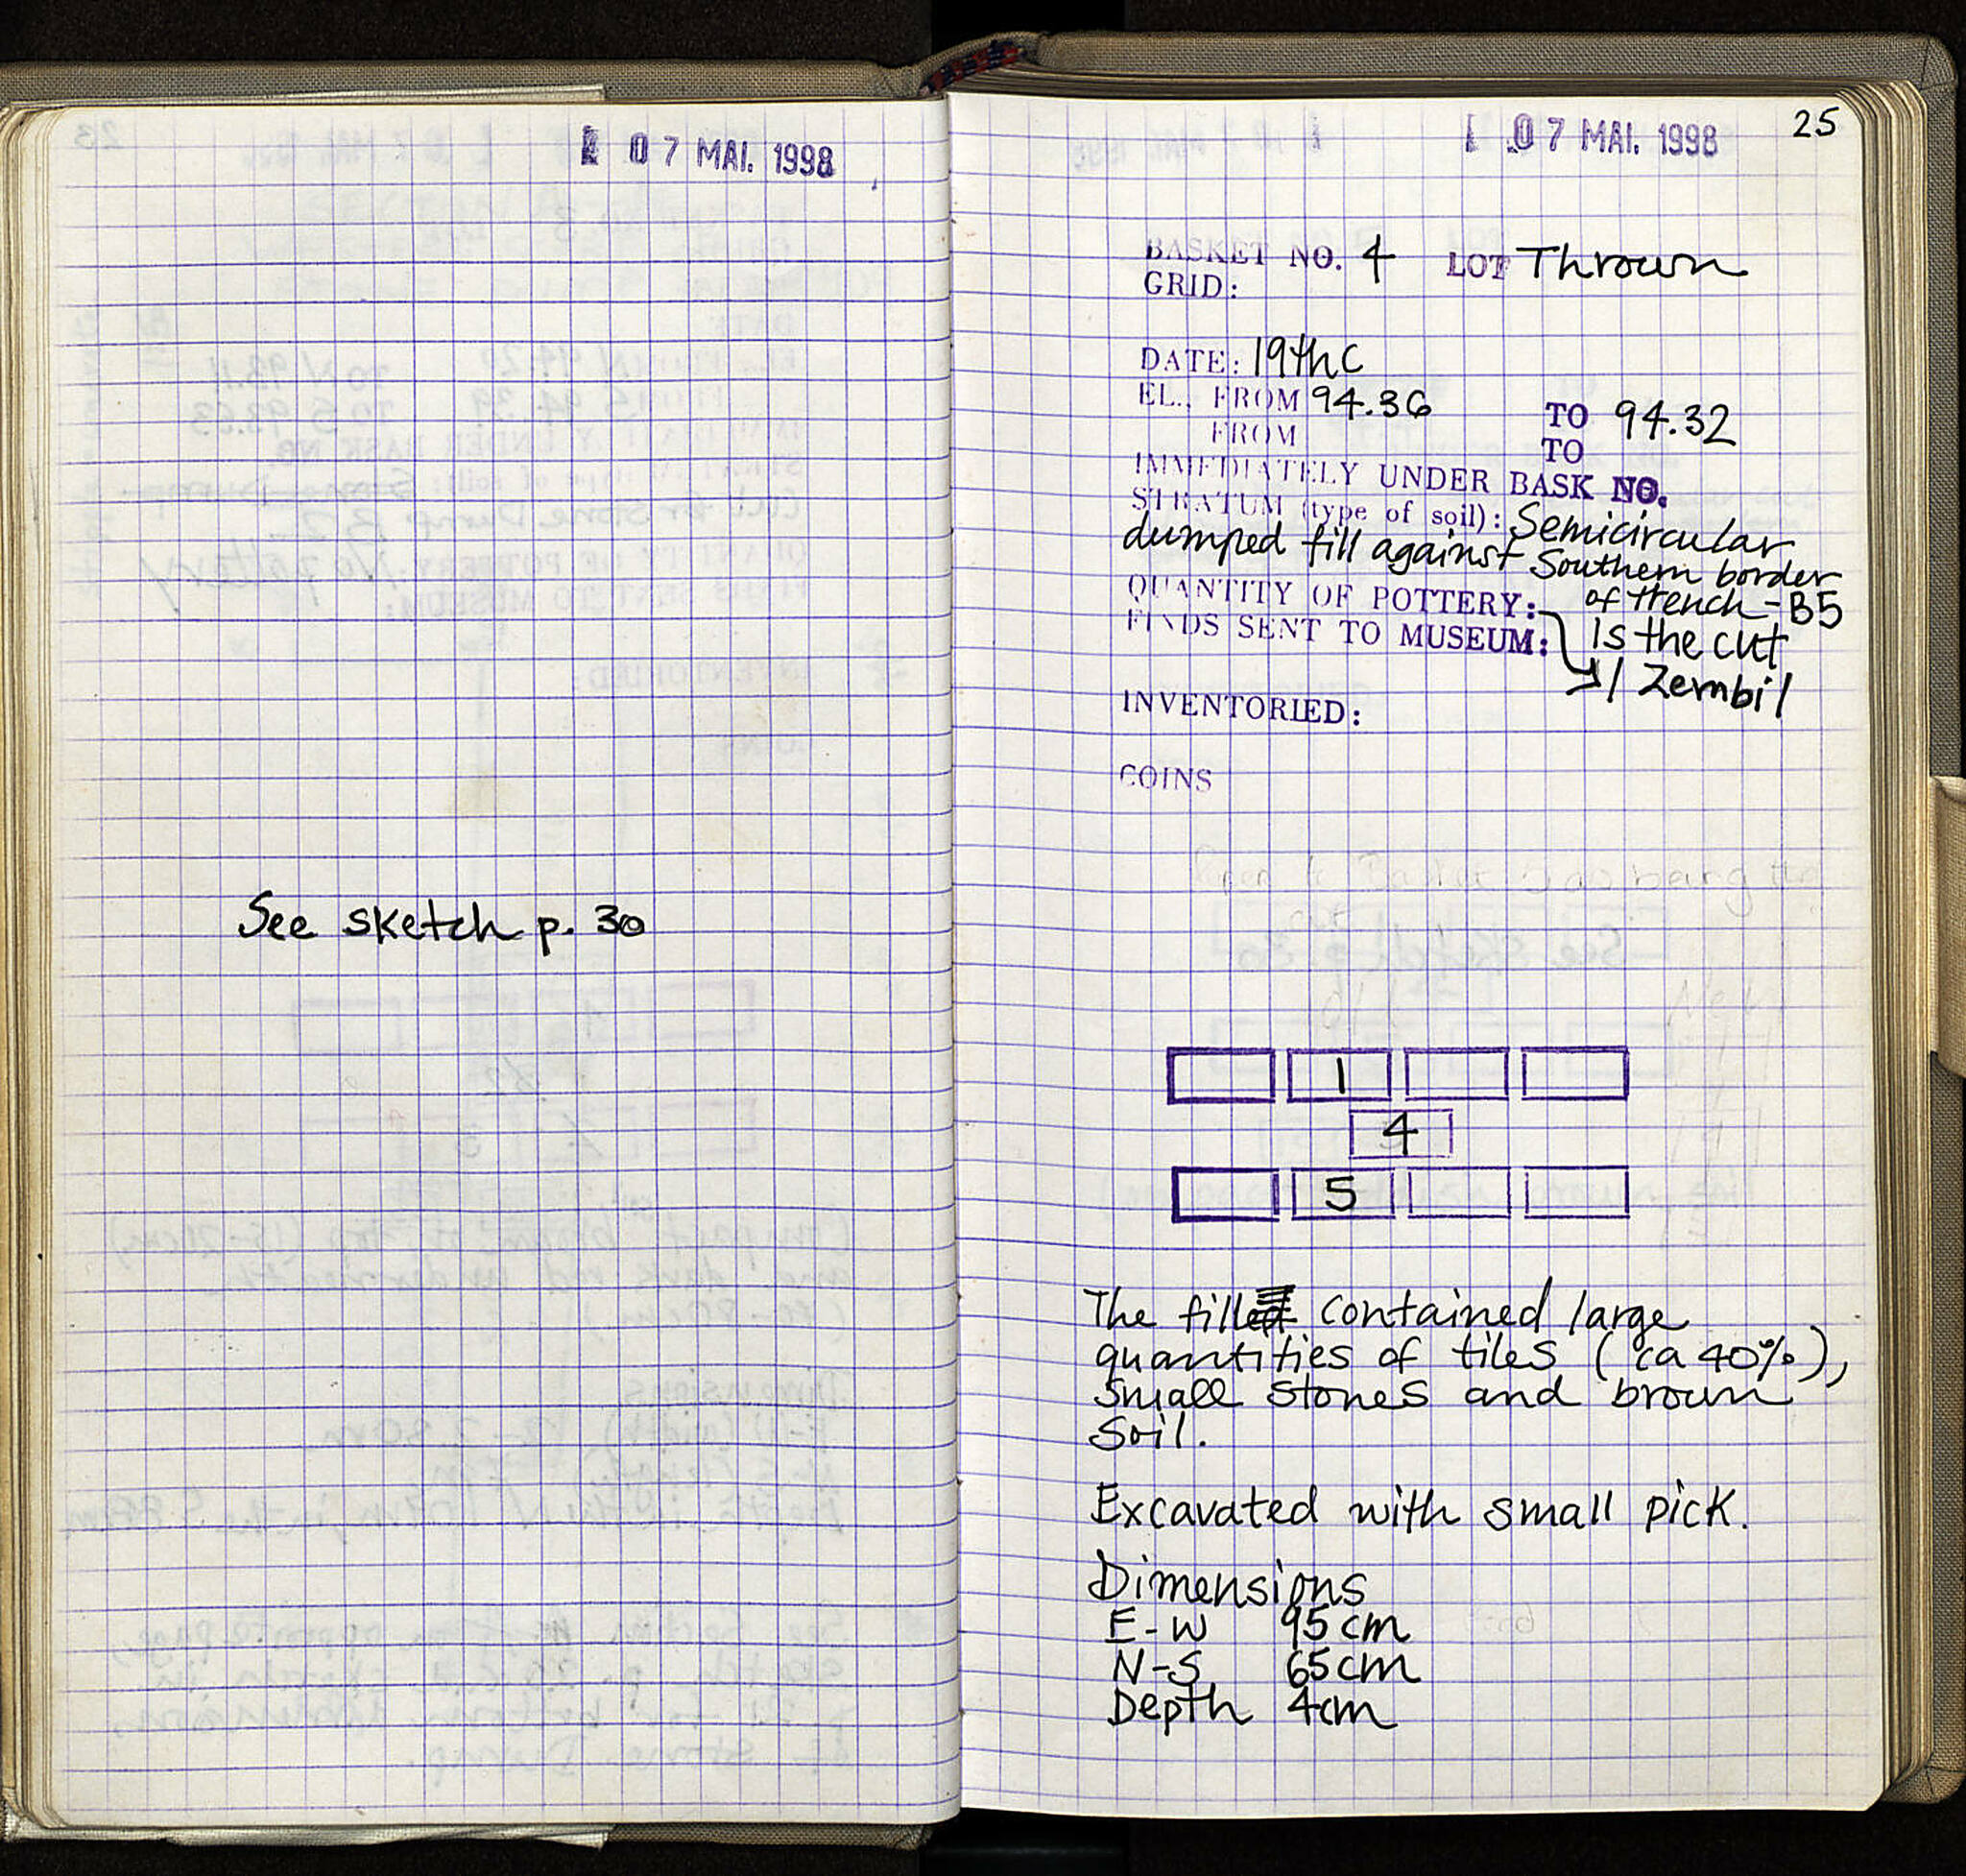 07 MAI. 1998
See sketch p. 30
07 MAI. 1998
25
BASKET NO. 4 LOT Thrown
GRID:
DATE: 19thC
EL., FROM 94.36 TO 94.32
FROM TO
IMMEDIATELY UNDER BASK NO.
STRATUM (type of soil): Semicircular
dumped fill against Southern border
of trench - B5
QUANTITY OF POTTERY:
is the cut
FINDS SENT TO MUSEUM:
1 Zembil
INVENTORIED:
COINS
1
4
5
The fill contained large
quantities of tiles (ca 40%),
small stones and brown
soil.
Excavated with small pick.
Dimensions
E-W 95cm
N-S 65cm
Depth 4cm